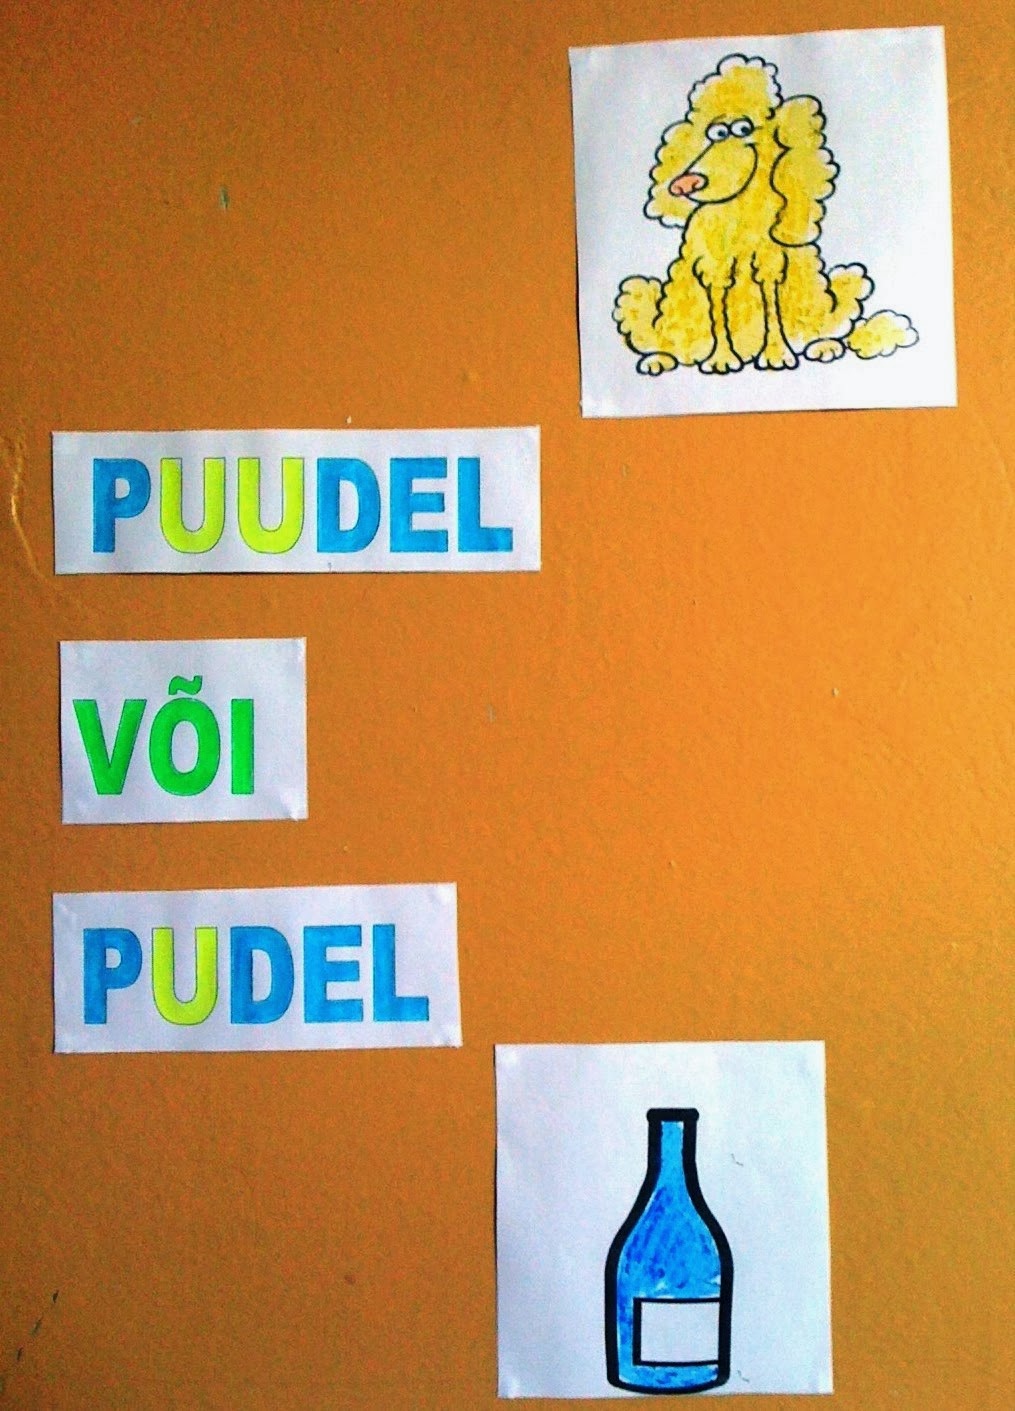 PUUDEL
VÕI
PUDEL